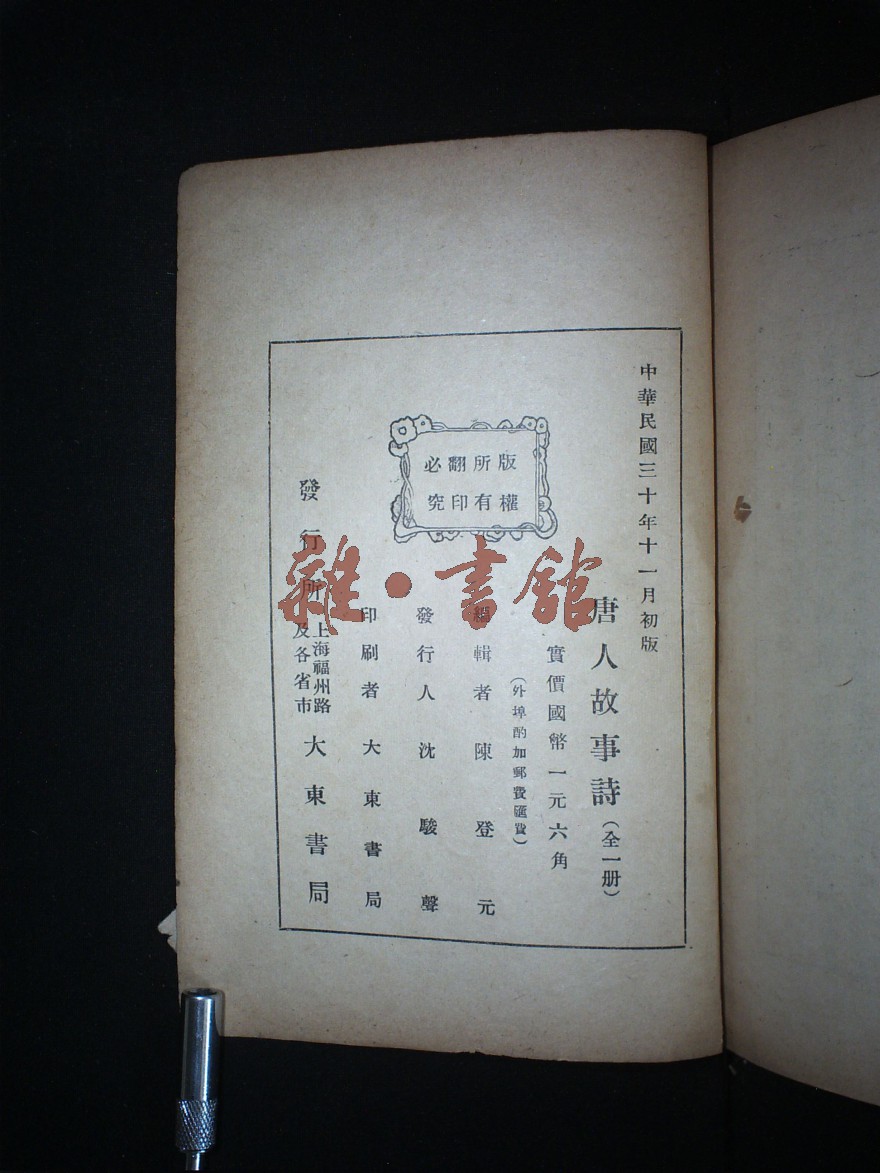 中華民國三十年十一月初版
唐人故事詩(全一册)
實價國幣一元六角
(外埠酌加郵費匯費)
編輯者 陳登元
發行人 沈駿聲
印刷者 大東書局
發行所 上海福州路及各省市 大東書局
版權
所有
翻印
必究
雜·書館